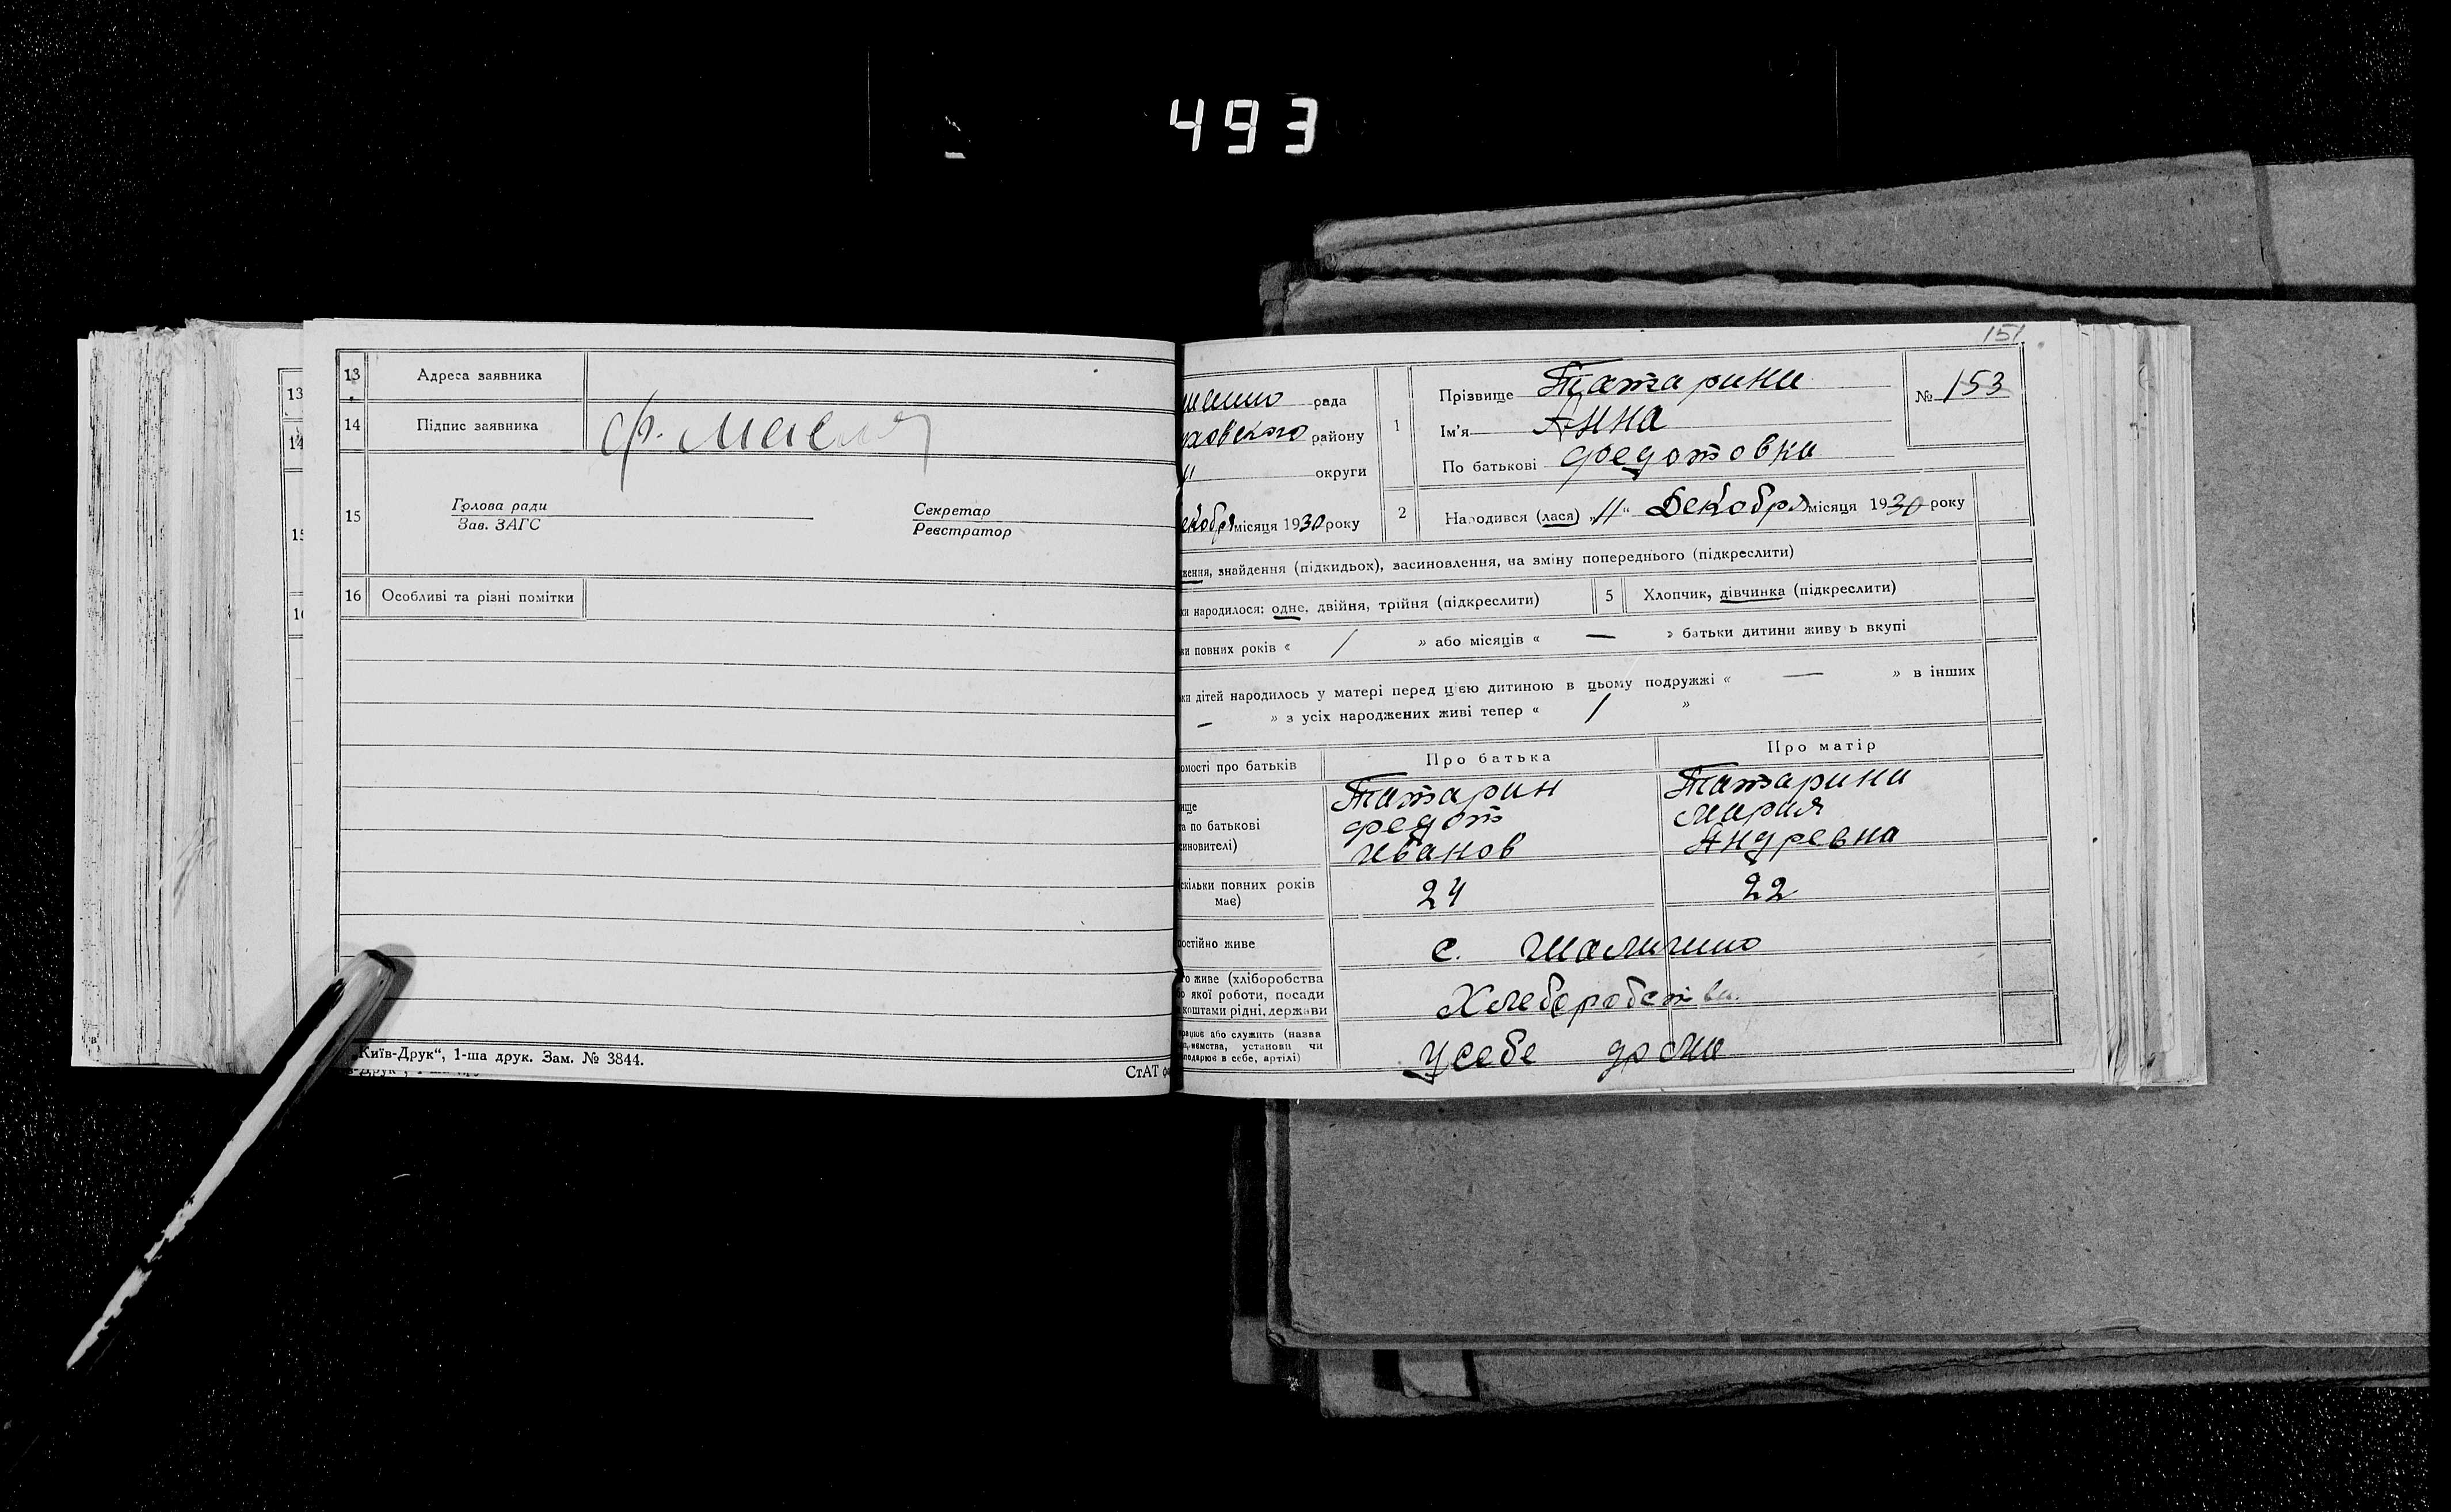 493
13 Адреса заявника
14 Підпис заявника
15 Голова ради
Зав. ЗАГС
Секретар
Реєстратор
16 Особливі та різні помітки
„Київ-Друк“, 1-ша друк. Зам. № 3844.
СтАТ
13
14
15
16
151
рада
району
округи
місяця 1930 року
1 Прізвище Татарин
Ім'я Анна
По батькові Федотовна
№ 153
2 Народився (лася) „11“ Декобря місяця 1930 року
ження, знайдення (підкидьок), засиновлення, на зміну попереднього (підкреслити)
ки народилося: одне, двійня, трійня (підкреслити)
5 Хлопчик, дівчинка (підкреслити)
ки повних років « / » або місяців « — » батьки дитини живуть вкупі
ки дітей народилось у матері перед цією дитиною в цьому подружжі « — » в інших
— » з усіх народжених живі тепер « / »
омості про батьків
Про батька
Про матір
ище
та по батькові
синовителі)
Татарин
Федот
Иванов
Татарини
Мария
Андревна
скільки повних років
має)
24
22
постійно живе
с.
го живе (хліборобства
бо якої роботи, посади
коштами рідні, держави
Хлеборобства
працює або служить (назва
установи чи
подарює в себе, артілі)
у себе дома